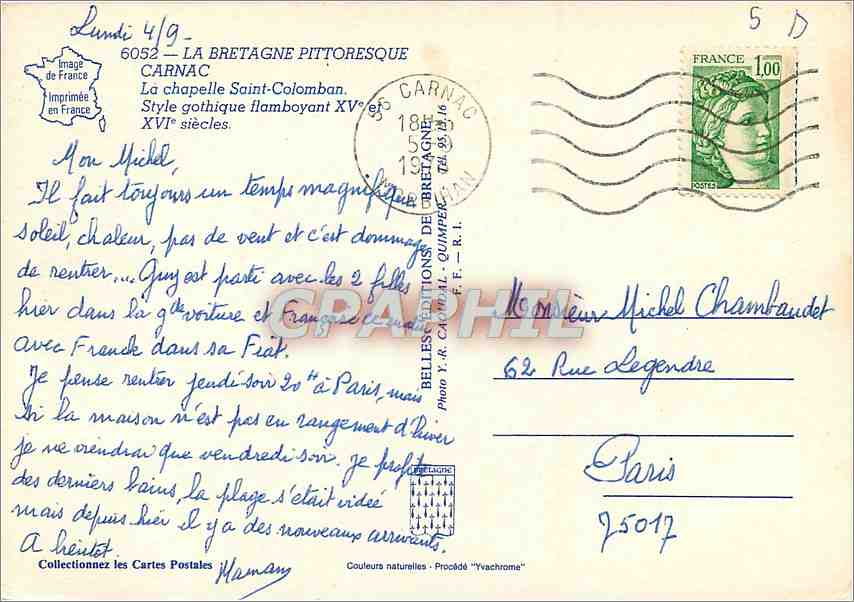 Lundi 4/9_
5 D
6052 — LA BRETAGNE PITTORESQUE
CARNAC
La chapelle Saint-Colomban.
Style gothique flamboyant XVe et
XVIe siècles.
Image
de France
Imprimée
en France
56 CARNAC
18H
5-9
19
MORBIHAN
FRANCE 1,00
POSTES
Mon Michel,
Il fait toujours un temps magnifique
soleil, chaleur, pas de vent et c'est dommage
de rentrer... Guy est parti avec les 2 filles
hier dans la gde voiture et Françoise ce matin
avec Franck dans sa Fiat.
Je pense rentrer jeudi soir 20H à Paris, mais
si la maison n'est pas en rangement d'hiver
je ne viendrai que vendredi soir. Je profite
des derniers bains, la plage s'était vidée
mais depuis hier il y a des nouveaux arrivants.
A bientôt.
Maman
BELLES EDITIONS DE BRETAGNE
Photo Y. R. CAOUDAL - QUIMPER Tél. 95.15.16
F. F. - R. I.
CPAPHIL
Monsieur Michel Chambaudet
62 Rue Legendre
Paris
75017
BRETAGNE
Collectionnez les Cartes Postales
Couleurs naturelles - Procédé "Yvachrome"